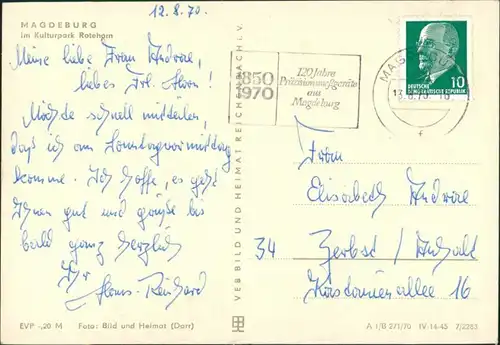 MAGDEBURG
Im Kulturpark Rotehorn
12.8.70.
Meine liebe Frau Andrae,
liebes Frl. Horn!
Möchte schnell mitteilen,
daß ich am Sonntagvormittag
komme. Ich hoffe, es geht
Ihnen gut und grüße bis
bald ganz herzlich
Ihr
Hans-Reinhard
EVP -,20 M
Foto: Bild und Heimat (Darr)
VEB BILD UND HEIMAT REICHENBACH I. V.
1850
1970
120 Jahre
Präzisionsmeßgeräte
aus
Magdeburg
DEUTSCHE
DEMOKRATISCHE REPUBLIK
10
Frau
Elisabeth Andrae
34 Zerbst / Anhalt
Kastanienallee 16
A 1/B 271/70 IV-14-45 7/2283